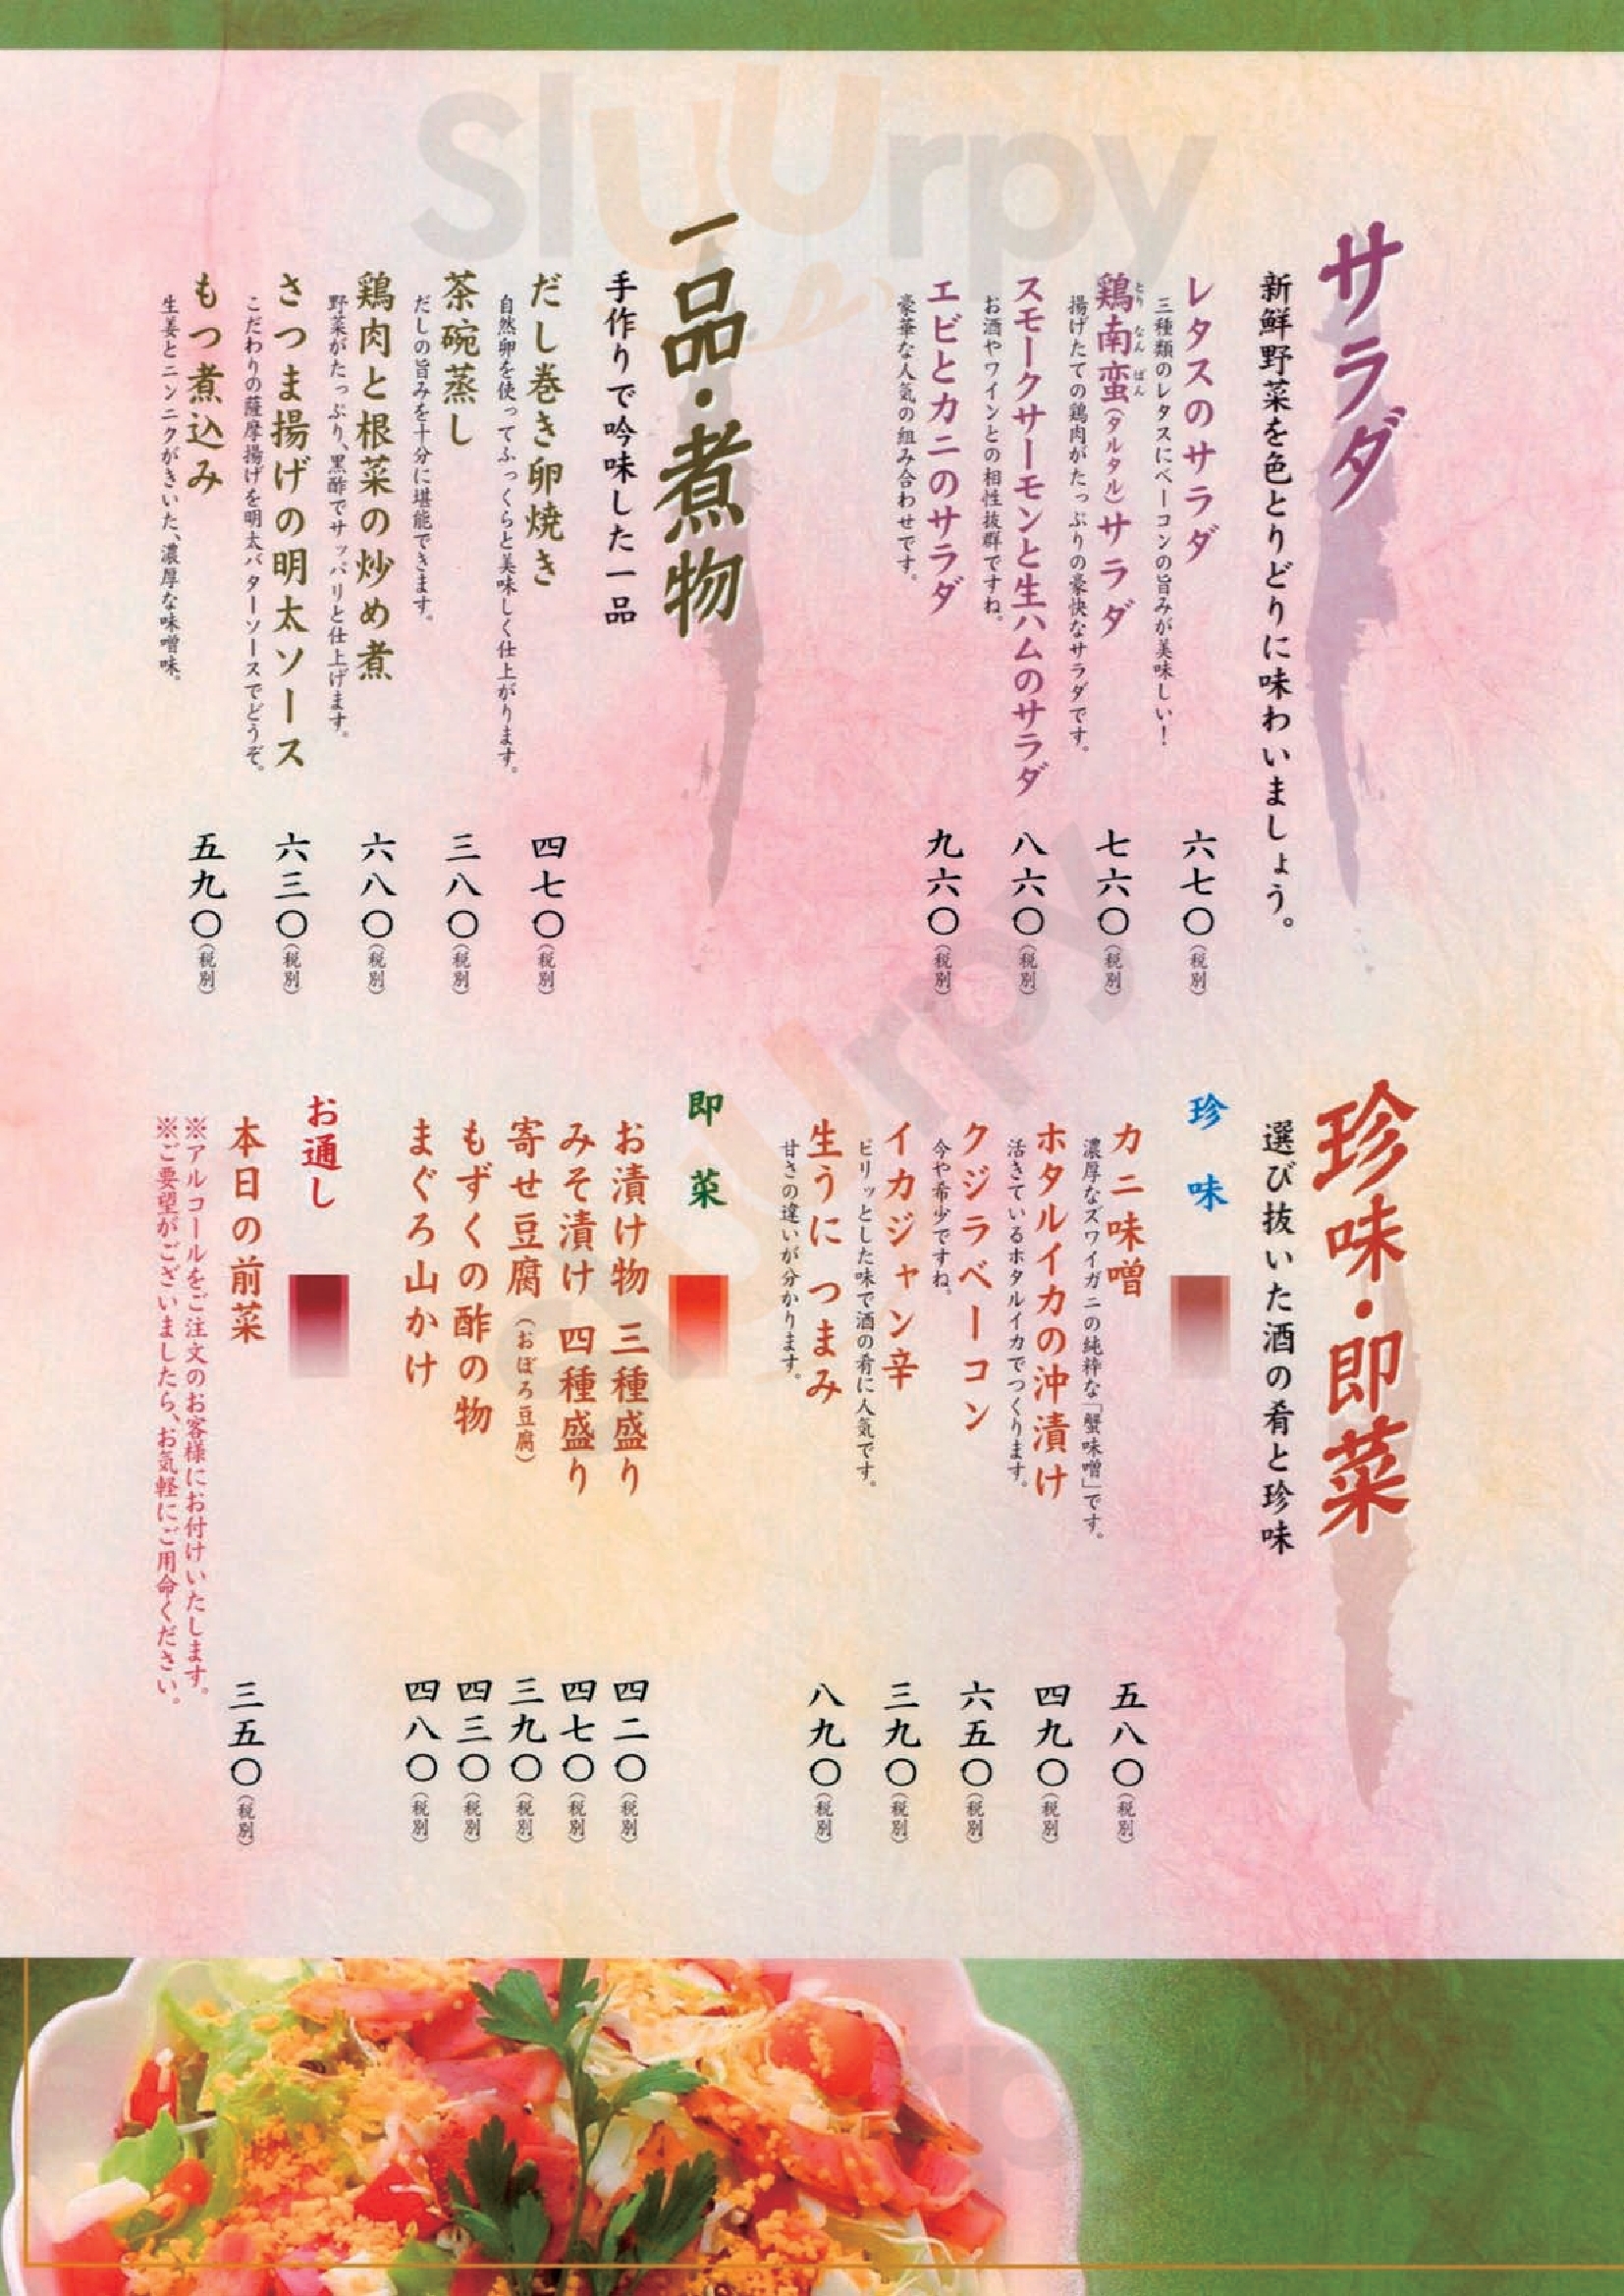 サラダ
新鮮野菜を色とりどりに味わいましょう。
レタスのサラダ
三種類のレタスにベーコンの旨みが美味しい！
六七〇（税別）
鶏南蛮（タルタル）サラダ
とり なん ばん
揚げたての鶏肉がたっぷりの豪快なサラダです。
七六〇（税別）
スモークサーモンと生ハムのサラダ
お酒やワインとの相性抜群ですね。
八六〇（税別）
エビとカニのサラダ
豪華な人気の組み合わせです。
九六〇（税別）
一品・煮物
手作りで吟味した一品
だし巻き卵焼き
自然卵を使ってふっくらと美味しく仕上がります。
四七〇（税別）
茶碗蒸し
だしの旨みを十分に堪能できます。
三八〇（税別）
鶏肉と根菜の炒め煮
野菜がたっぷり、黒酢でサッパリと仕上げます。
六八〇（税別）
さつま揚げの明太ソース
こだわりの薩摩揚げを明太バターソースでどうぞ。
六三〇（税別）
もつ煮込み
生姜とニンニクがきいた、濃厚な味噌味。
五九〇（税別）
珍味・即菜
選び抜いた酒の肴と珍味
珍味
カニ味噌
濃厚なズワイガニの純粋な「蟹味噌」です。
五八〇（税別）
ホタルイカの沖漬け
活きているホタルイカでつくります。
四九〇（税別）
クジラベーコン
今や希少ですね。
六五〇（税別）
イカジャン辛
ピリッとした味で酒の肴に人気です。
三九〇（税別）
生うに つまみ
甘さの違いが分かります。
八九〇（税別）
即菜
お漬け物 三種盛り
四二〇（税別）
みそ漬け 四種盛り
四七〇（税別）
寄せ豆腐（おぼろ豆腐）
三九〇（税別）
もずくの酢の物
四三〇（税別）
まぐろ山かけ
四八〇（税別）
お通し
本日の前菜
三五〇（税別）
※アルコールをご注文のお客様にお付けいたします。
※ご要望がございましたら、お気軽にご用命ください。
Sluurpy
sluurpy
rpy